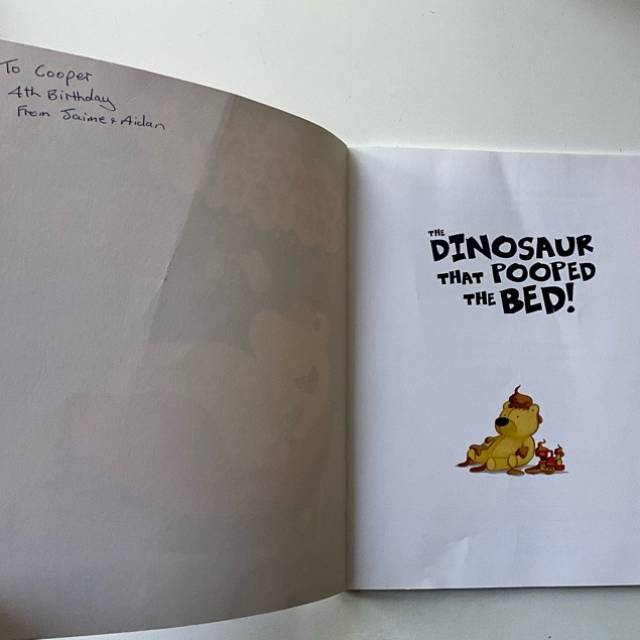 To Cooper
4th Birthday
From Jaime & Aidan
THE
DINOSAUR
THAT POOPED
THE BED!